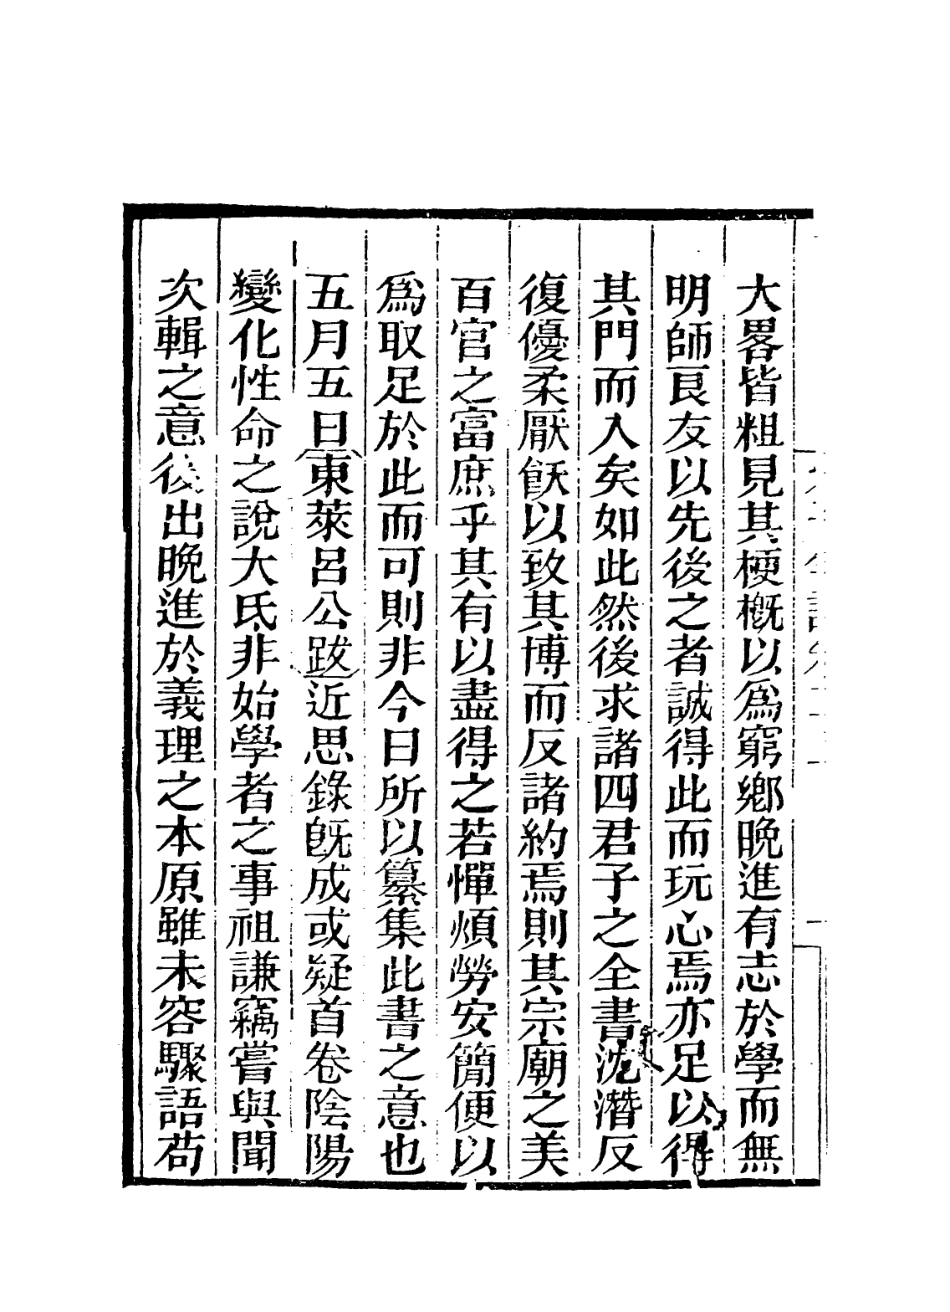 大畧皆粗見其梗槪以爲窮鄉晚進有志於學而無
明師良友以先後之者誠得此而玩心焉亦足以得
其門而入矣如此然後求諸四君子之全書沈潛反
復優柔厭飫以致其博而反諸約焉則其宗廟之美
百官之富庶乎其有以盡得之若憚煩勞安簡便以
爲取足於此而可則非今日所以纂集此書之意也
五月五日東萊呂公跋近思錄旣成或疑首卷陰陽
變化性命之說大氐非始學者之事祖謙竊嘗與聞
次輯之意後出晚進於義理之本原雖未容驟語苟